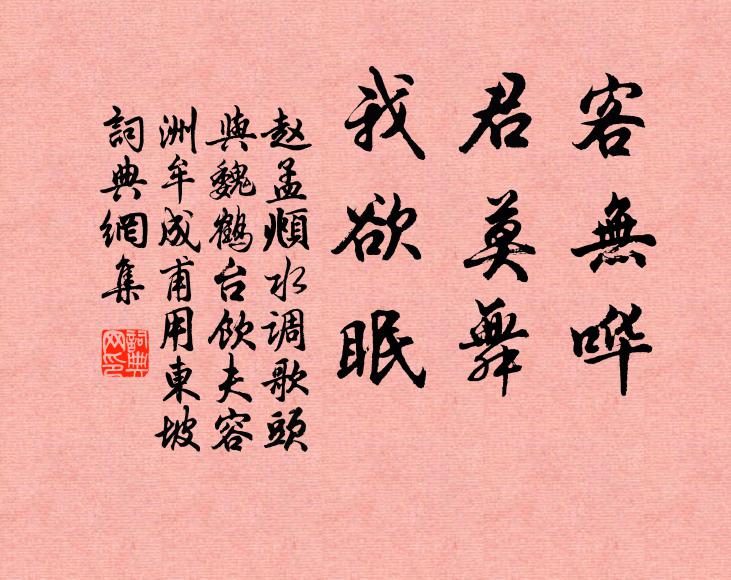 客無哗
君莫舞
我欲眠
赵孟頫水调歌頭
與魏鹤台饮夫容
洲牟成甫用東坡
詞典網集
詞典網印